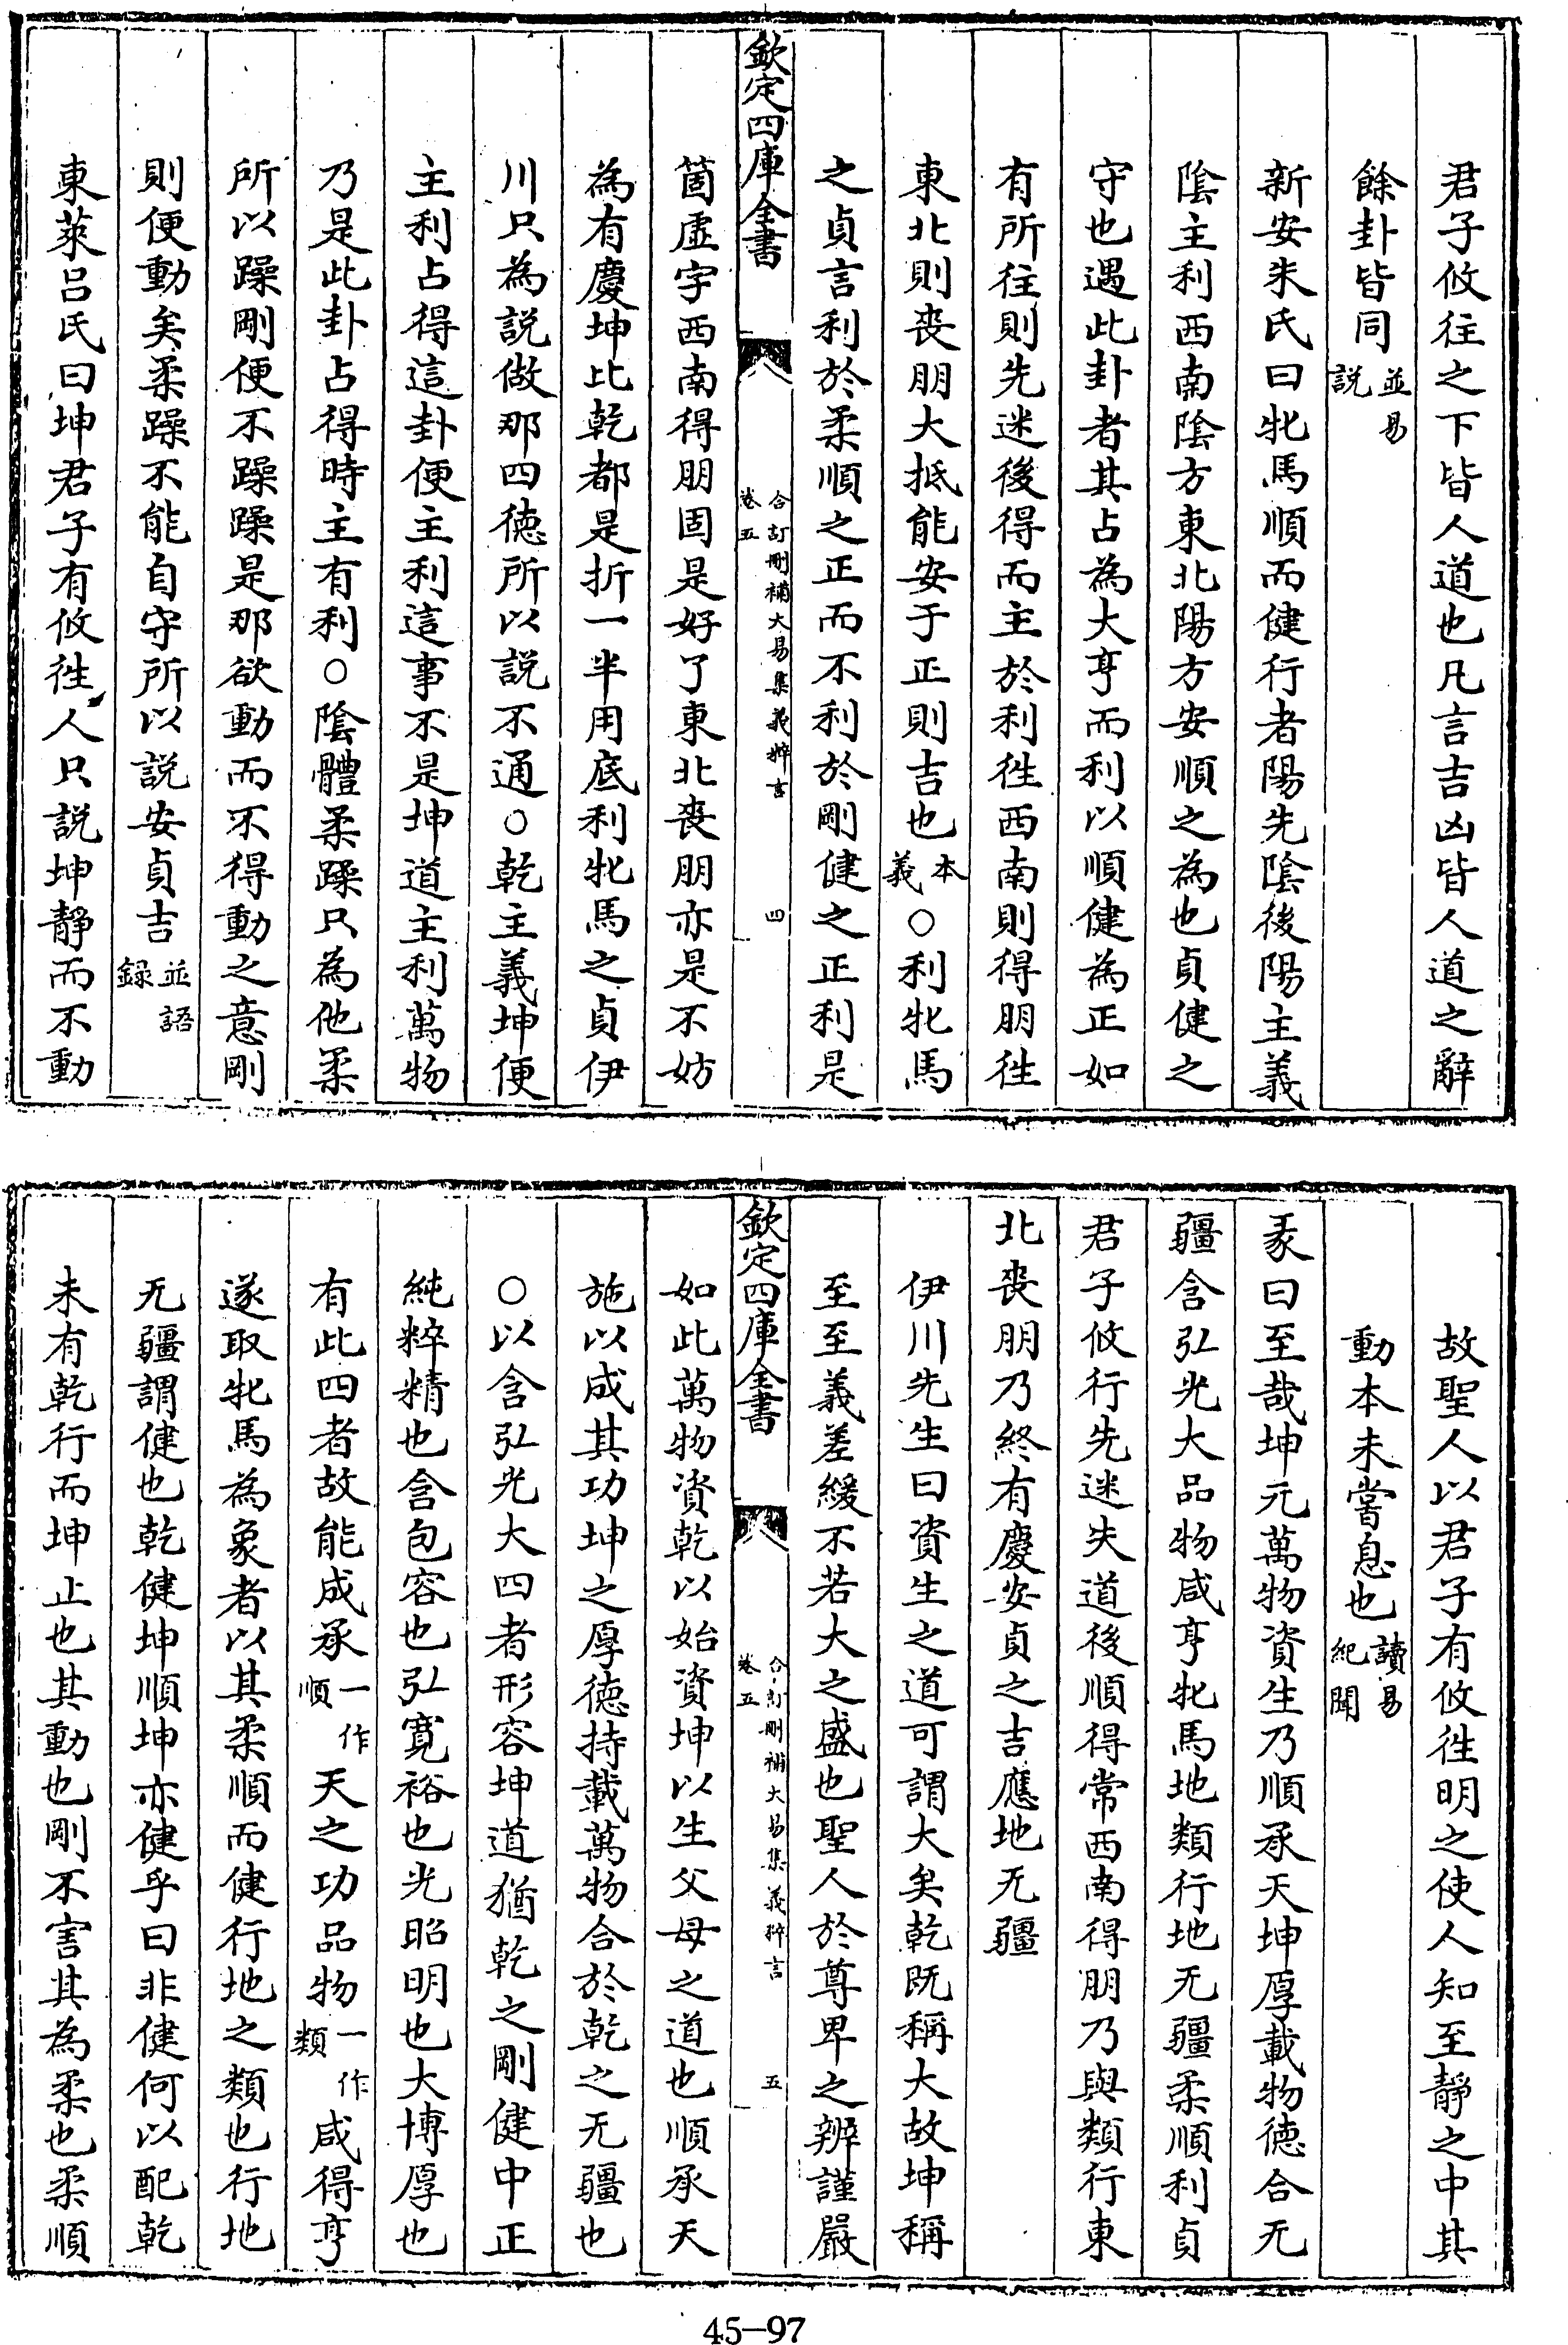 君子攸往之下皆人道也凡言吉凶皆人道之辭
餘卦皆同並易説
新安朱氏曰牝馬順而健行者陽先陰後陽主義
陰主利西南陰方東北陽方安順之為也貞健之
守也遇此卦者其占為大亨而利以順健為正如
有所往則先迷後得而主於利徃西南則得朋徃
東北則喪朋大抵能安于正則吉也本義○利牝馬
之貞言利於柔順之正而不利於剛健之正利是
欽定四庫全書
合訂刪補大易集義粹言
卷五
四
箇虛字西南得朋固是好了東北喪朋亦是不妨
為有慶坤比乾都是折一半用底利牝馬之貞伊
川只為説做那四徳所以説不通○乾主義坤便
主利占得這卦便主利這事不是坤道主利萬物
乃是此卦占得時主有利○陰體柔躁只為他柔
所以躁剛便不躁躁是那欲動而不得動之意剛
則便動矣柔躁不能自守所以説安貞吉並語録
東萊吕氏曰坤君子有攸徃人只説坤靜而不動
故聖人以君子有攸徃明之使人知至靜之中其
動本未嘗息也讀易紀聞
彖曰至哉坤元萬物資生乃順承天坤厚載物徳合无
疆含弘光大品物咸亨牝馬地類行地无疆柔順利貞
君子攸行先迷失道後順得常西南得朋乃與類行東
北喪朋乃終有慶安貞之吉應地无疆
伊川先生曰資生之道可謂大矣乾既稱大故坤稱
至至義差緩不若大之盛也聖人於尊卑之辨謹嚴
欽定四庫全書
合訂刪補大易集義粹言
卷五
五
如此萬物資乾以始資坤以生父母之道也順承天
施以成其功坤之厚徳持載萬物合於乾之无疆也
○以含弘光大四者形容坤道猶乾之剛健中正
純粹精也含包容也弘寛裕也光昭明也大博厚也
有此四者故能成承一作順天之功品物一作類咸得亨
遂取牝馬為象者以其柔順而健行地之類也行地
无疆謂健也乾健坤順坤亦健乎曰非健何以配乾
未有乾行而坤止也其動也剛不害其為柔也柔順
45-97